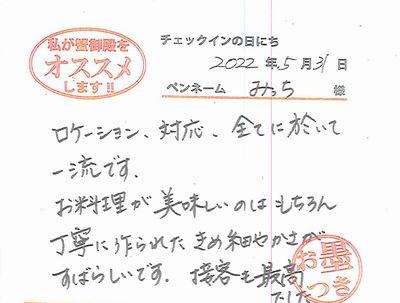 私が蟹御殿を
オススメ
します!!
チェックインの日にち
2022年5月31日
ペンネーム みっち 様
ロケーション、対応、全てに於いて
一流です。
お料理が美味しいのはもちろん
丁寧に作られたきめ細やかさが
すばらしいです。接客も最高
でした
お墨
つき